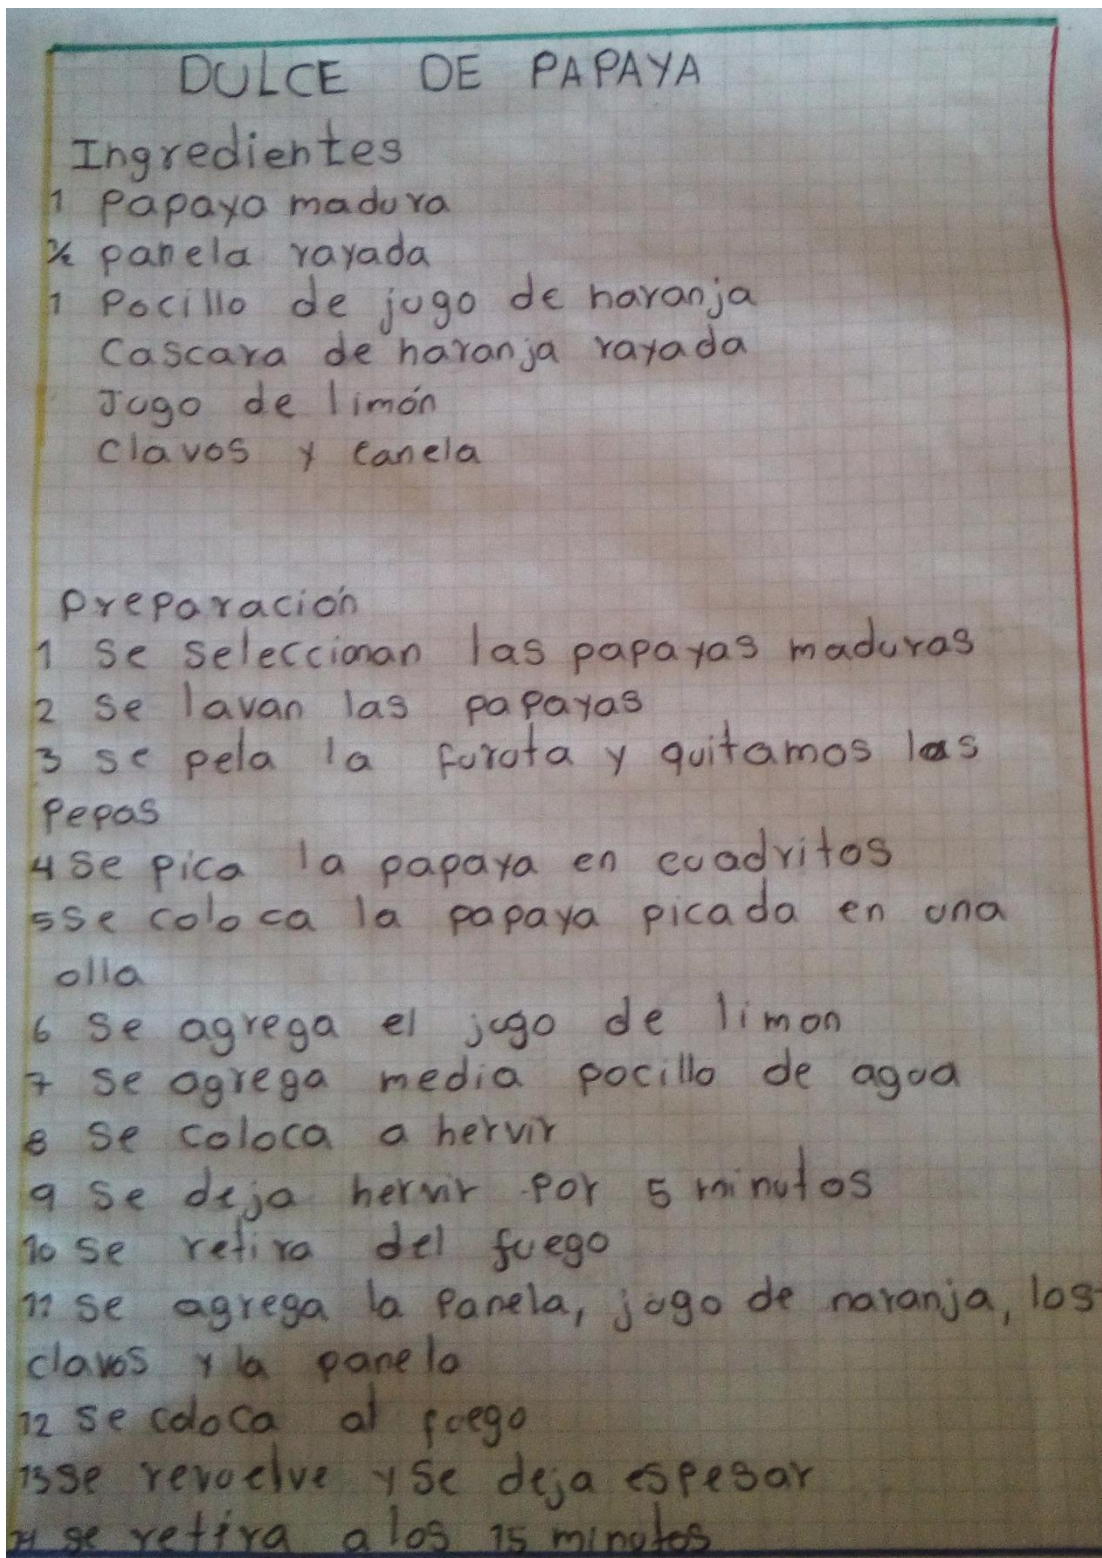 DULCE DE PAPAYA
Ingredientes
1 Papaya madura
½ panela rayada
1 Pocillo de jugo de naranja
Cascara de naranja rayada
Jugo de limón
Clavos y canela
Preparación
1 Se seleccionan las papayas maduras
2 Se lavan las papayas
3 se pela la furuta y quitamos las
Pepas
4 Se pica la papaya en cuadritos
5 Se coloca la papaya picada en una
olla
6 Se agrega el jugo de limon
7 Se agrega media pocillo de agua
8 Se coloca a hervir
9 Se deja hervir por 5 minutos
10 Se retira del fuego
11 Se agrega la Panela, jugo de naranja, los
clavos y la panela
12 Se coloca al fuego
13 Se revuelve y Se deja espesar
14 se retira a los 15 minutos